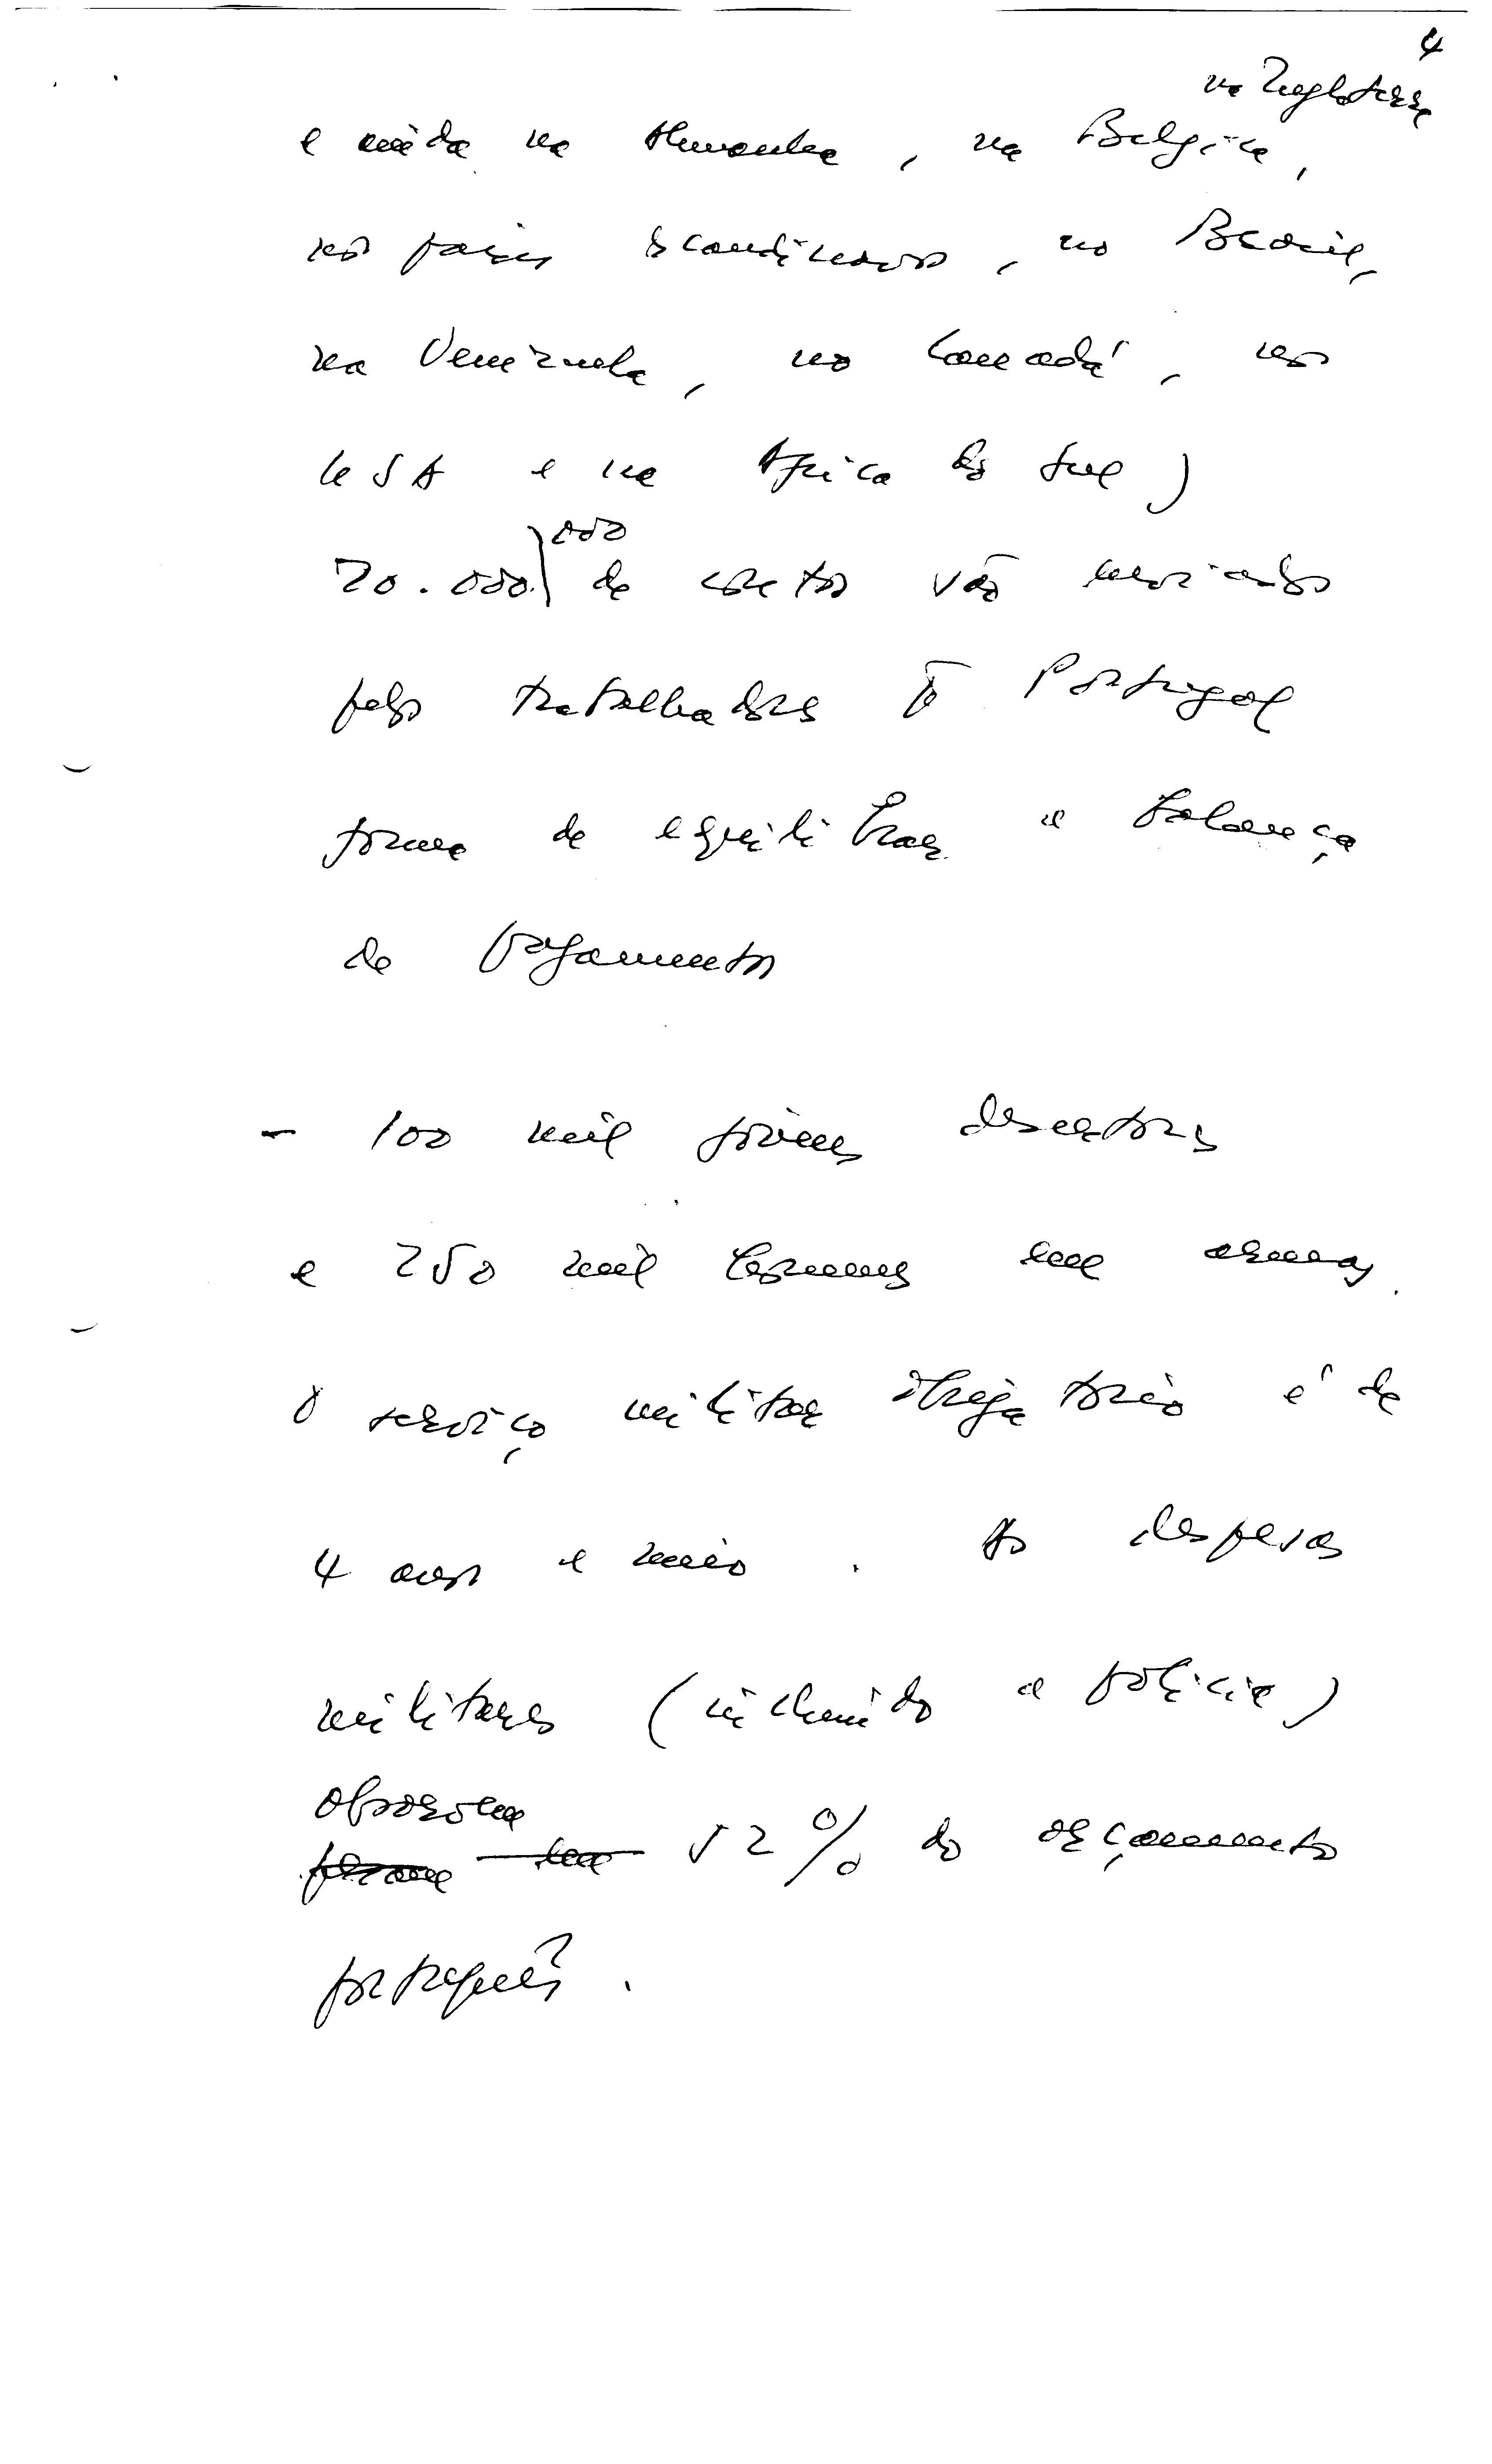 4
na Inglaterra
e ainda na Alemanha, na Belgica,
nos paises scandinavos, no Brasil,
na Venezuela, no Canadá, nos
USA e na Africa do Sul)
20.000.000 de contos vão enviados
pelos trabalhadores p Portugal
forma de equilibrar a balança
de pagamentos
- 100 mil jóvens desertores
e 250 mil homens em armas.
O serviço militar obrigatório é de
4 anos e meio. As despesas
militares (incluindo a policia)
absorvem
52% do orçamento
português.